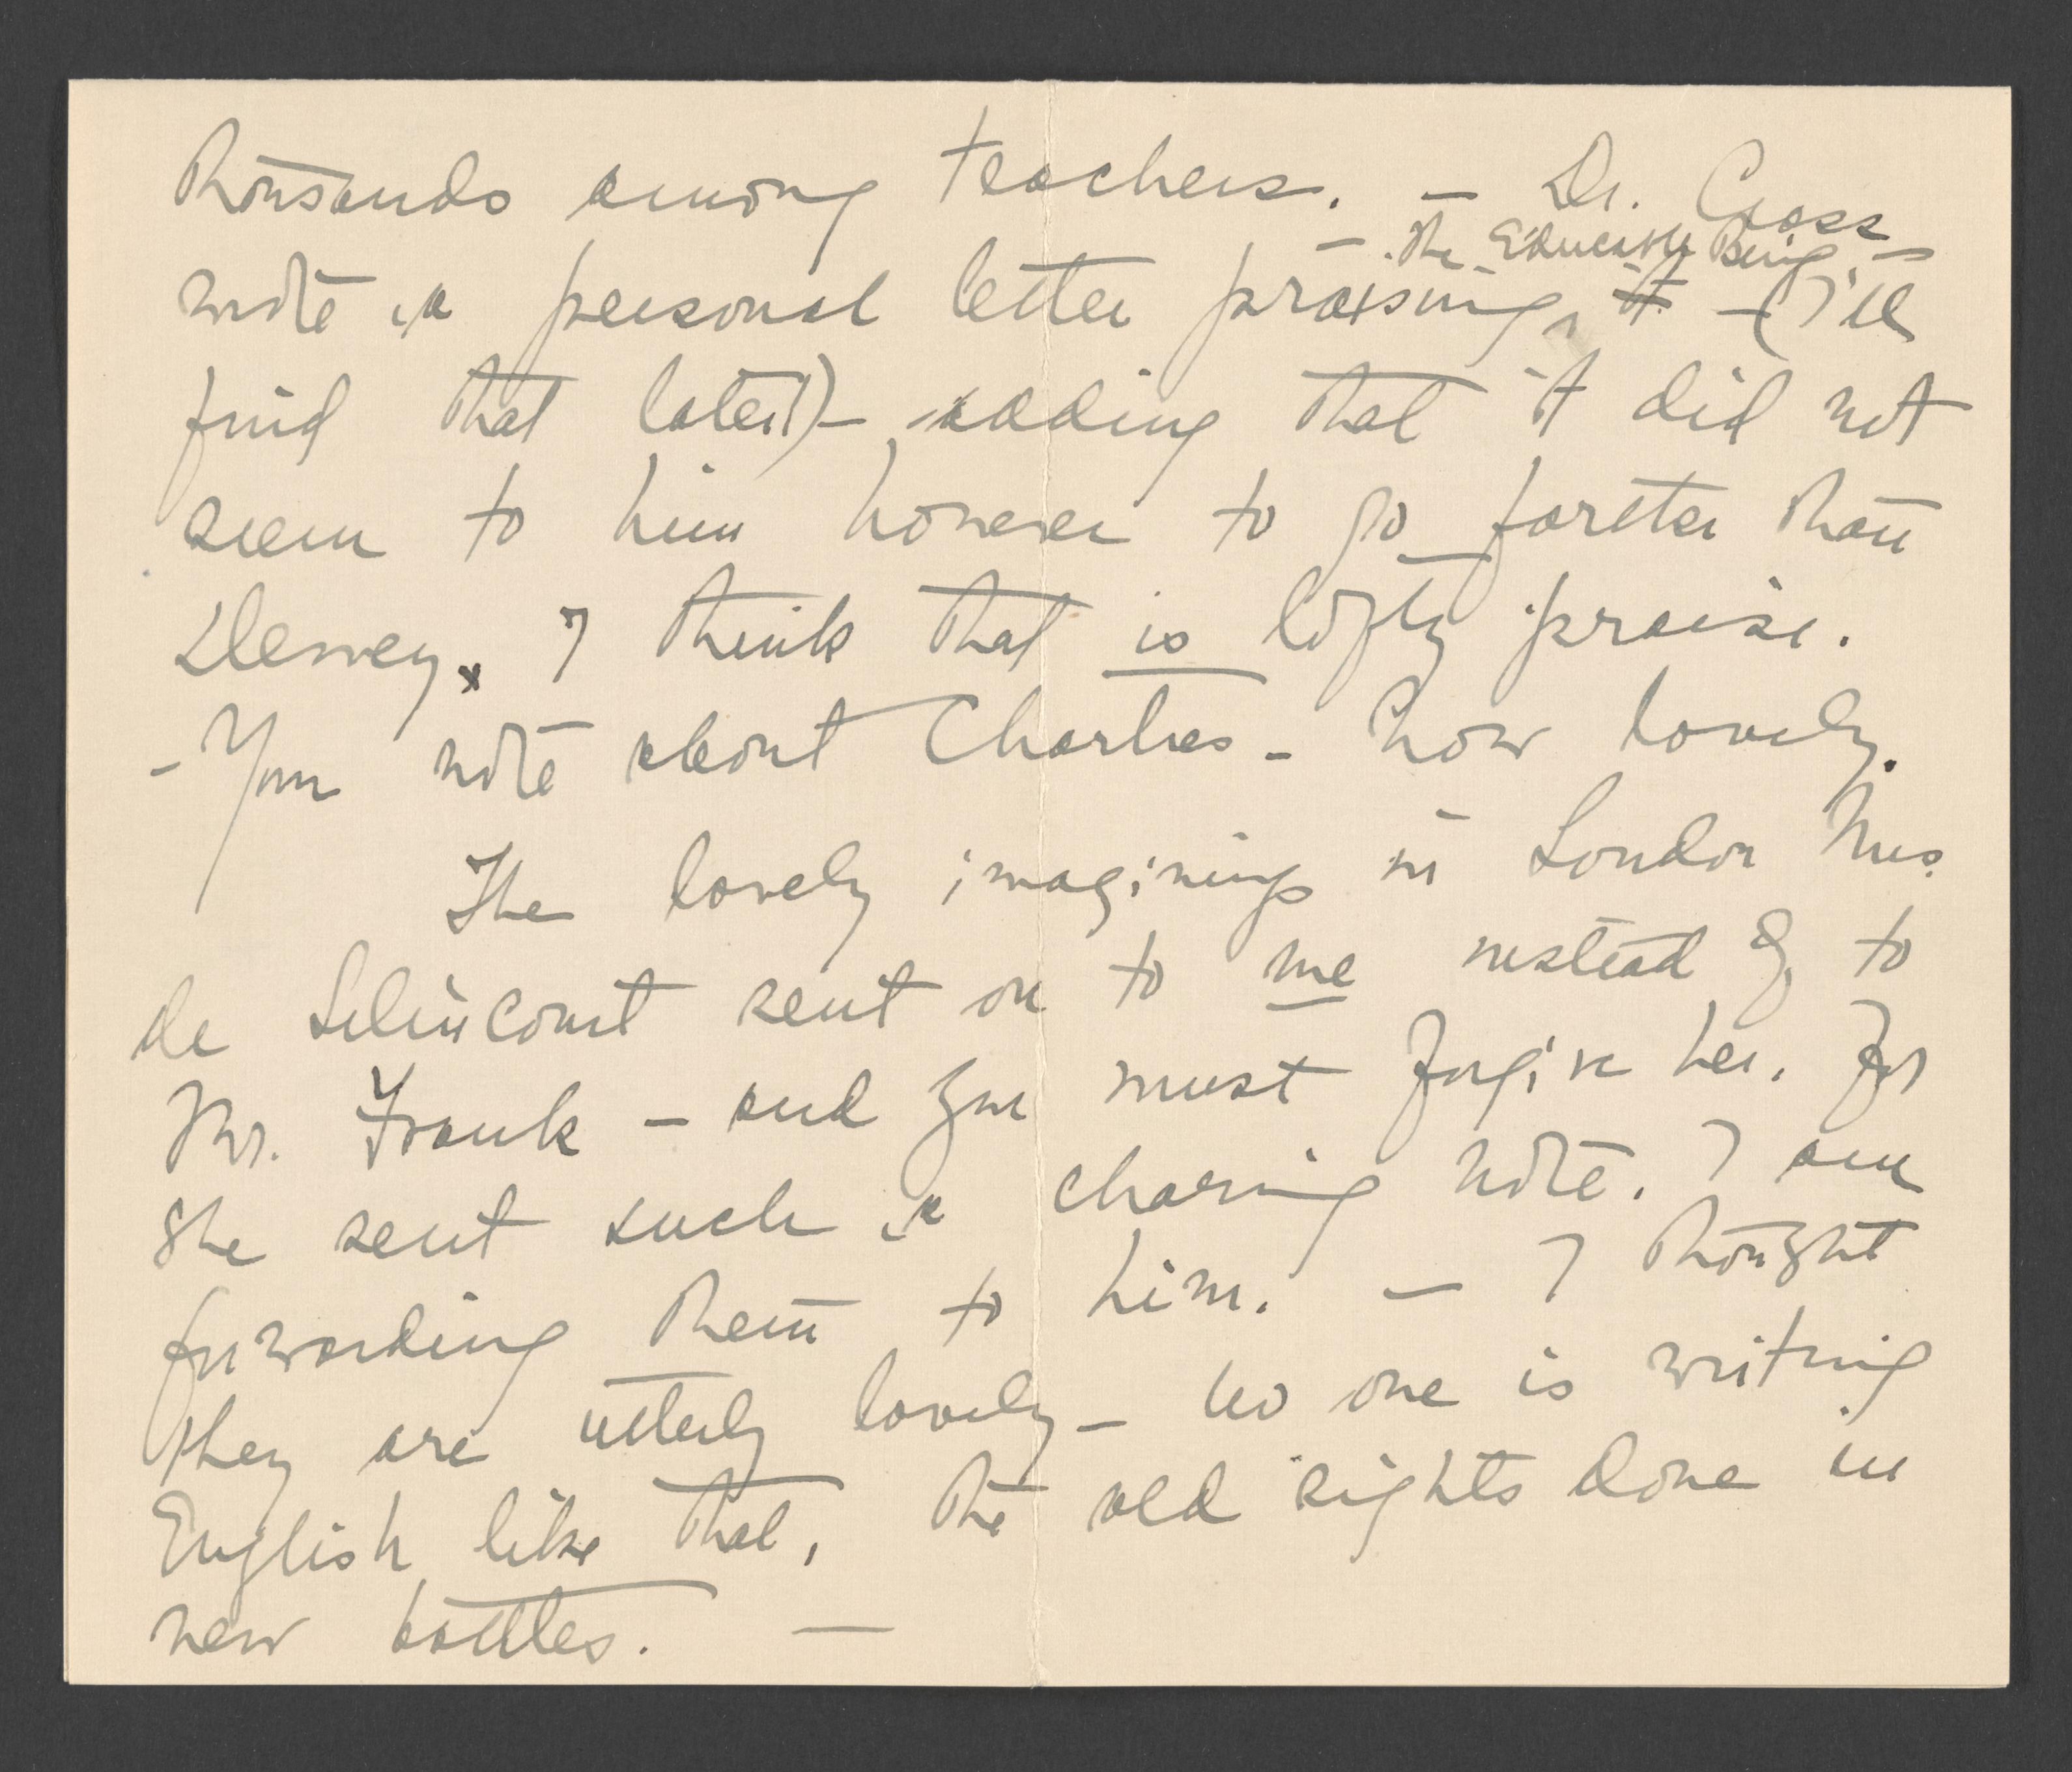 thousands among teachers. — Dr. Cross
— The Educative Being —
wrote a personal letter praising, it — (I'll
find that later!) — adding that it did not
seem to him however to go farther than
Dewey. I think that is lofty praise.
- Your note about Charles - how lovely.
The lovely imaginings in London Mrs.
de Selincourt sent on to me instead of to
Mr. Frank — and you must forgive her. For
She sent such a charing note. I am
forwarding them to him. — I thought
they are utterly lovely - no one is writing
English like that, the old sights done in
new bottles. —